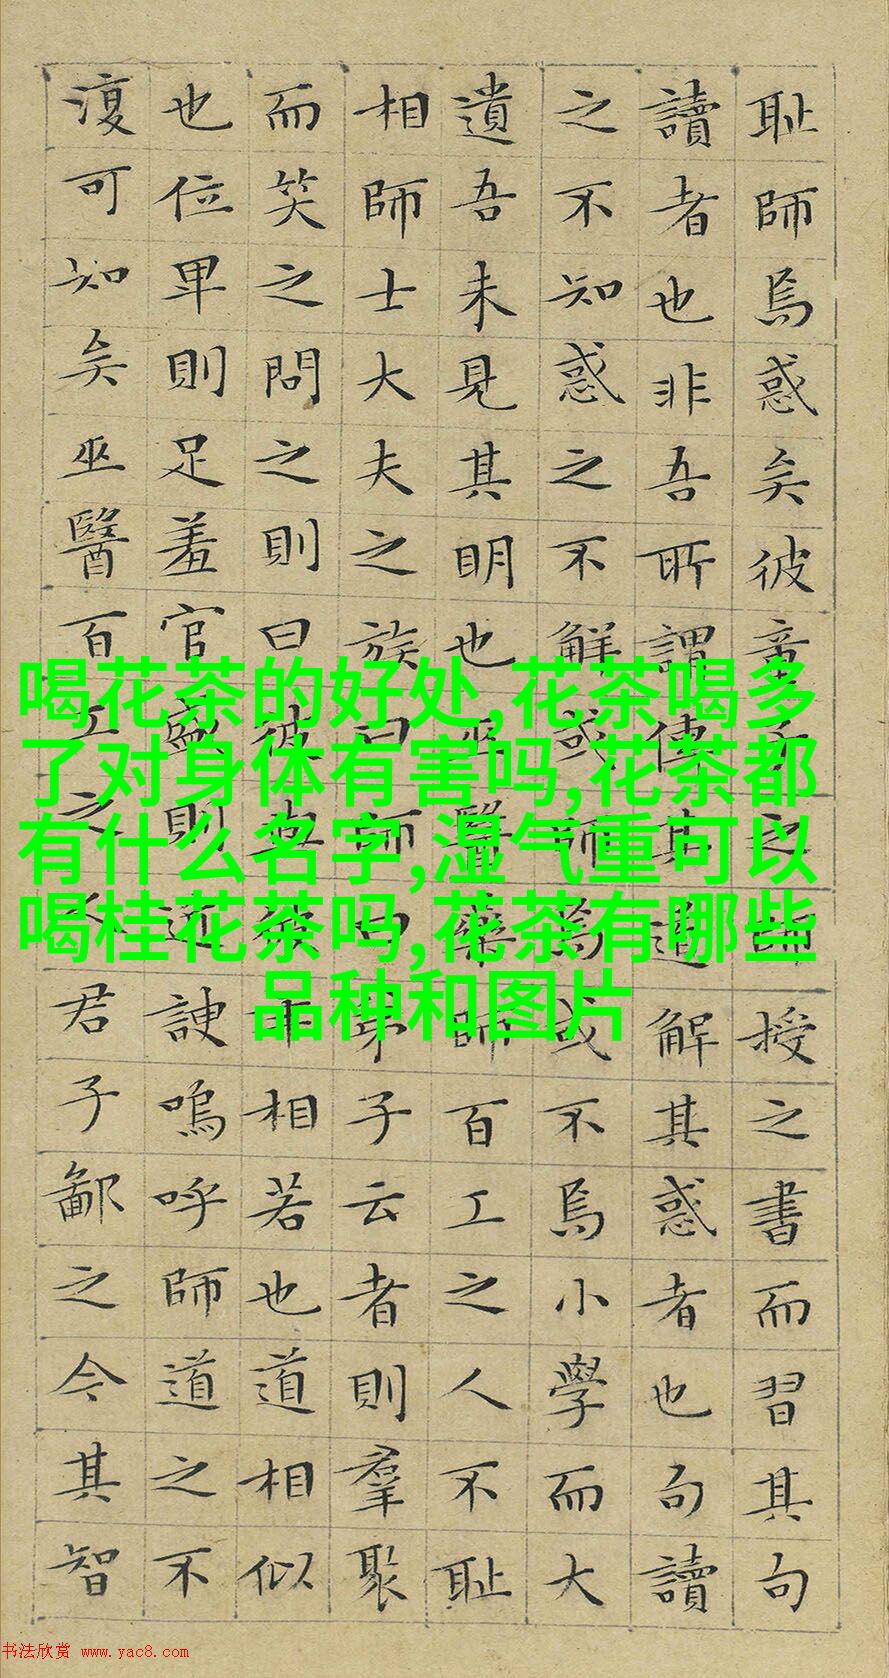 耻師焉惑矣彼童子之師授之書而習其句
讀者也非吾所謂傳其道解其惑者也句讀
之不知惑之不解或師焉或不焉小學而大
遺吾未見其明也巫醫藥師百工之人不耻
相師士大夫之族曰師曰弟子云者則羣聚
而笑之問之則曰彼與彼年相若也道相似
也位卑則足羞官盛則近諛嗚呼師道之不
復可知矣巫醫百工之人君子鄙之今其智
喝花茶的好处,花茶喝多
了对身体有害吗,花茶都
有什么名字,湿气重可以
喝桂花茶吗,花茶有哪些
品种和图片
书法欣赏 www.yac8.com